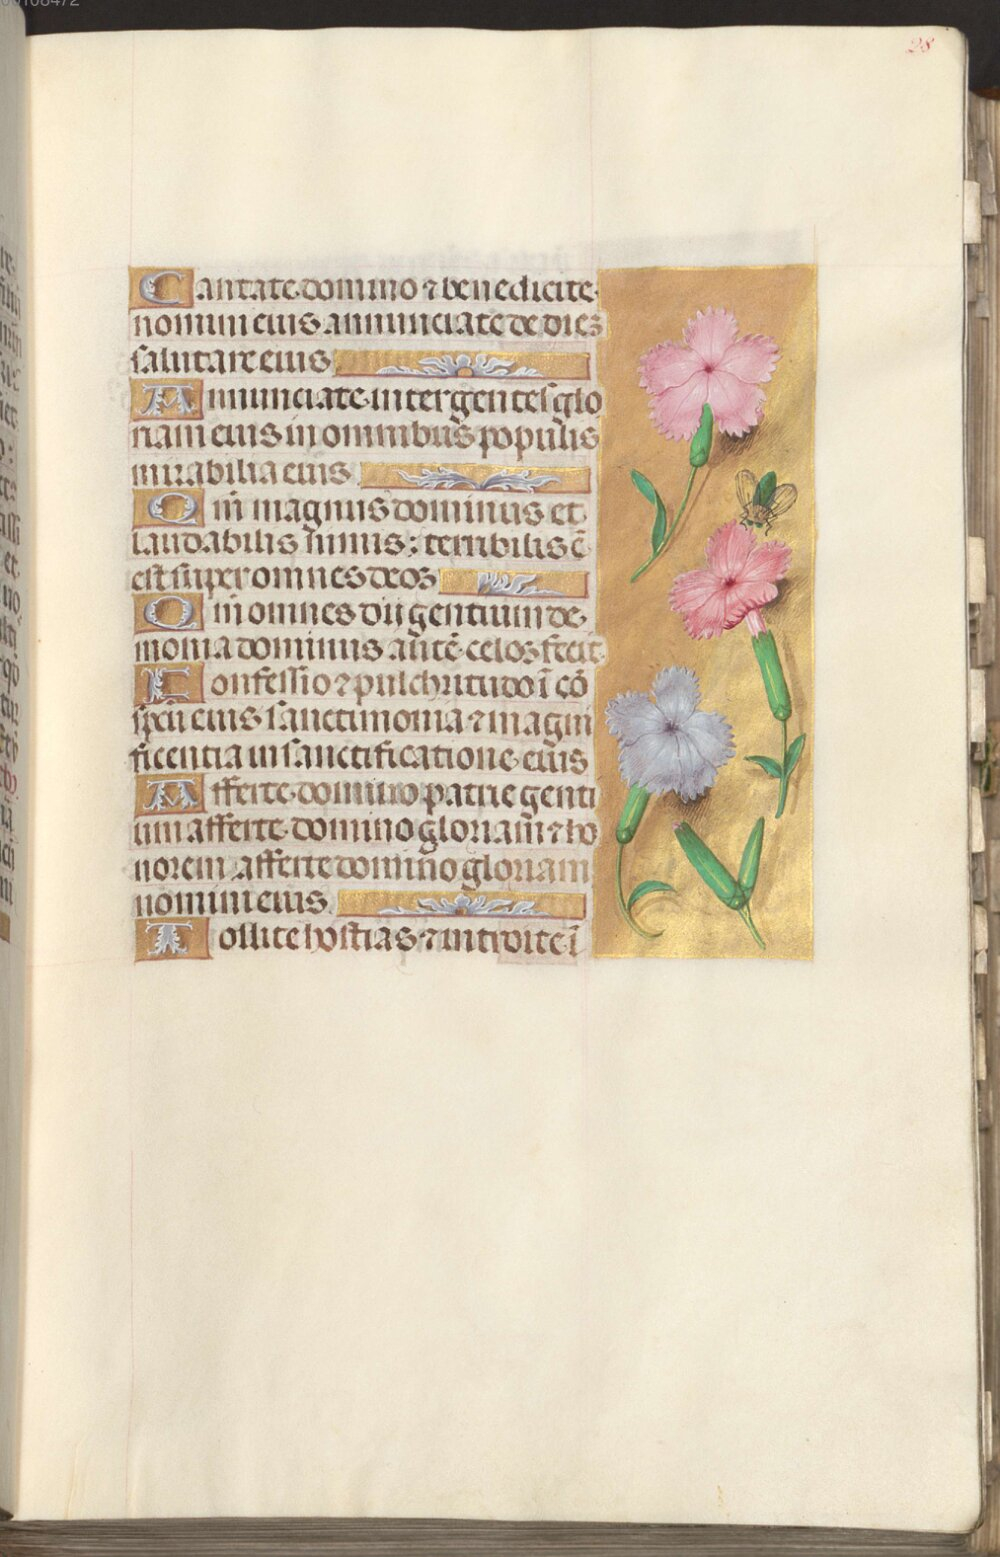 28
Cantate domino ⁊ benedicite
nomini eius annunciate de diez
salutare eius
Annunciate inter gentes glo
riam eius in omnibus populis
mirabilia eius
Qm̄ magnus dominus et
laudabilis nimis: terribilis ē
est super omnes deos
Qm̄ omnes dii gentium de
monia dominus autē celos fecit
Confessio ⁊ pulchritudo ī cō
spcū eius sanctimonia ⁊ magni
ficentia in sanctificatione eius
Afferte domino patrie genti
um afferte domino gloriam ⁊ ho
norem afferte domino gloriam
nomini eius
Tollite hostias ⁊ introite ī